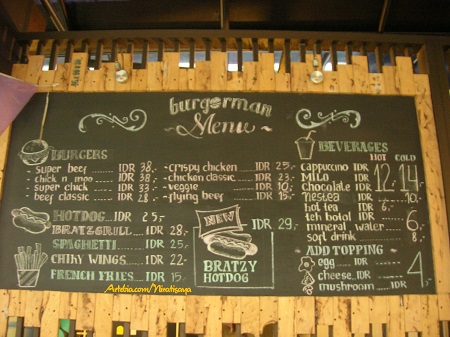 burgerman
~ Menu ~
BURGERS
- super beef IDR 38,-
- chick n moo IDR 38,-
- super chick IDR 33,-
- beef classic IDR 28,-
- crispy chicken IDR 25,-
- chicken classic IDR 23,-
- veggie IDR 10,-
- flying beef IDR 15,-
HOTDOG IDR 25,-
BRATZGRILL IDR 28,-
SPAGHETTI IDR 25,-
CHIKY WINGS IDR 22,-
FRENCH FRIES IDR 15,-
NEW
IDR 29,-
BRATZY
HOTDOG
BEVERAGES
HOT COLD
cappucino IDR
MILO IDR
chocolate IDR
12,- 14,-
nestea IDR - 10,-
hot tea IDR 6,-
teh botol IDR
mineral water
6,-
soft drink 8,-
ADD TOPPING ~
egg IDR
cheese IDR
mushroom IDR
4,-
Artebia.com/Miratisaya